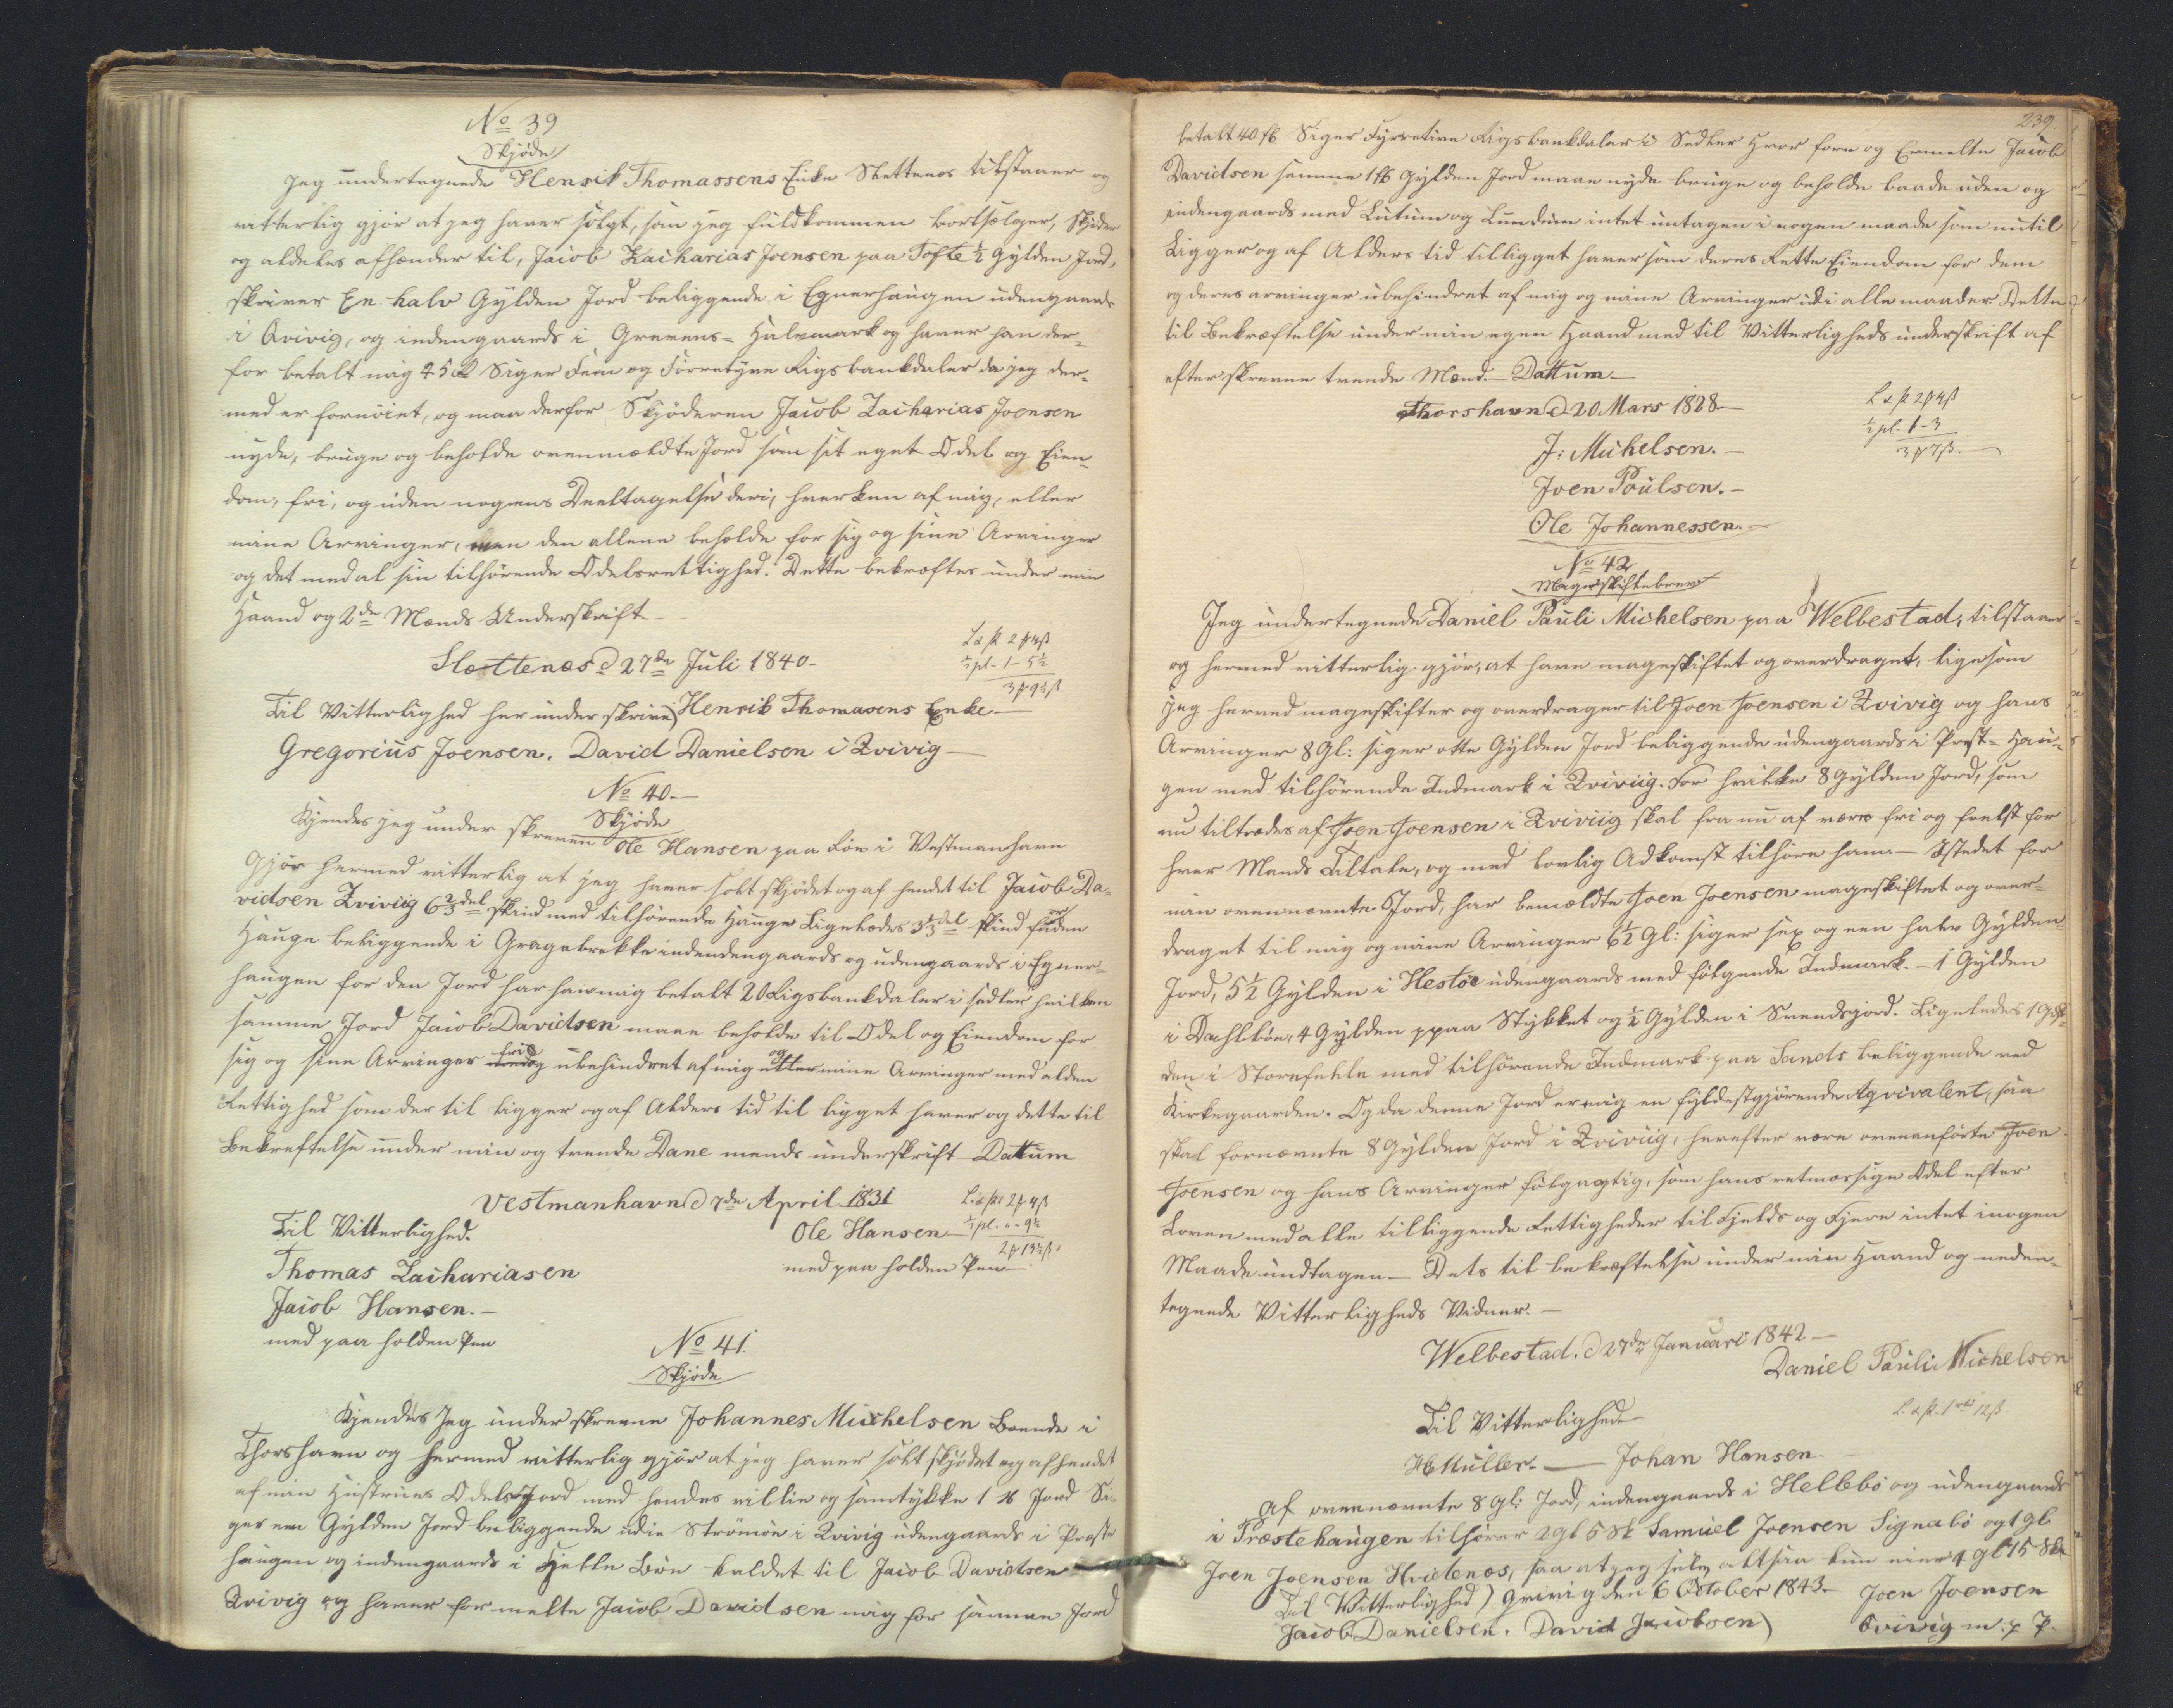 No 39
Skjöde
Jeg undertegnede Hensik Thomassens Enke Slettenes tilstaaer og
vitterlig gjör at jeg haver solgt, som jeg fuldkommen bortsælger, Skjöder
og aldeles afhænder til, Jacob Zacharias Joensen paa Tofte 1/2 Gylden Jord,
skriver En halv Gylden Jord beliggende i Egnerhaugen udengaards
i Qvivig, og indengaards i Grerens- Halvmark og haver han der-
for betalt mig 45 Siger Fem og Förretyve Rigsbankdaler da jeg der-
med er fornöiet, og maa derfor Skjöderen Jacob Zacharias Joensen
nyde, bruge og beholde ovenmældte Jord som sit eget Odel og Eien-
dom, fri, og uden nogens Deeltagelse deri, hverken af mig, eller
mine Arvinger, men den allene beholde for sig og sine Arvinger
og det med al sin tilhörende Odelsrettighed. Dette bekræftes under min
Haand og 2de Mænds Underskrift
Slættenæs d 27de Juli 1840-
L&K 2 4ß
1/2 pl- 1- 5 1/2
3 9 1/2 ß
Til Vitterlighed her under skrive) Henrik Thomasens Enke-
Gregorius Joensen. David Danielsen i Kvivig-
No 40.-
Skjöde
Kjendes jeg under skreven Ole Hansen paa Fön i Westmanhavn
Gjör hermed vitterlig at jeg haver solt skjödet og af hendet til Jacob Da-
vidsen Kvivig 6 2/3 del Skind med tilhörende Hauge Ligeledes 3 1/3 del Skind foruden
Hauge beliggende i Gragabrekke indendengaards og udengaards i Egner-
haugen for den Jord har hanmig betalt 20 Rigsbankdaler i sedler hvilken
samme Jord Jacob Davidsen maae beholde til Odel og Eiendom for
sig og sine Arvinger fri og ubehindret af mig og mine Arvinger med alden
Rettighed som der til ligger og af Alders tid til ligget haver og dette til
Bekreftelse under min og tvende Dane mends underskrift Dattum
Vestmanhavn d 7de April 1831
L&K 2 4ß
1/2 pl. " - 9 1/2
2 13 1/2 ß.
Til Vitterlighed. Ole Hansen-
Thomas Zachariasen med paa holden Pen-
Jacob Hansen.-
med paa holden Pen
No 41.
Skjöde
Kjendes Jeg under skrevne Johannes Michelsen Boende i
Thorshavn og hermed vitterlig gjör at jeg haver solt skjödet og afhendet
af min Hustrues Odels Jord med hendes villie og samtykke 1 Jord Si-
ger een Gylden Jord beliggende udie Strömöe i Kvivig udengaards i Præste
haugen og indengaards i Hielle Böen kaldet til Jacob Davidsen
Kvivig og haver formelte Jacob Davidsen mig for samme Jord
239.
betalt 40 Siger Fyrretive Rigsbankdaler i Sedler Hvor fore og Ermelte Jacob
Davidsen samme 1 Gylden Jord maae nyde bruge og beholde baade uden og
indengaards med Lutum og Lundum intet untagen i nogen maade som nutil
Ligger og af Alders tid tilligget haver som deres Rette Eiendom for dem
og deres arvinger ubehindret af mig og mine Arvinger udi alle maader Dette
til Bekræftelse under min egen Haand med til Vitterligheds underskrift af
efterskrevne tvende Mænd.- Dattum-
Thorshavn d 20 Mars 1828-
L&K 2 4ß
1/2 pl. 1-3
3 7ß.
J: Michelsen.-
Joen Poulsen.-
Ole Johannessen.-
No 42
Mageskiftebrev
Jeg undertegnede Daniel Pauli Michelsen paa Welbestad, tilstaaer
og hermed vitterlig gjör, at have mageskiftet og overdraget, ligesom
jeg herved mageskifter og overdrager til Joen Joensen i Kvivig og hans
Arvinger 8 Gl: siger otte Gylden Jord beliggende udengaards i Prest- Hau-
gen med tilhörende Indmark i Kviviig. For hvilke 8 Gylden Jord, som
nu tiltrædes af Joen Joensen i Kviviig skal fra nu af være fri og frelst for
hver Mands Tiltale, og med lovlig Adkomst tilhöre ham- Istedet for
min ovennævnte Jord, har bemældte Joen Joensen mageskiftet og over-
draget til mig og mine Arvinger 6 1/2 Gl: siger sex og een halv Gylden
Jord, 5 1/2 Gylden i Hestöe udengaards med fölgende Indmark.- 1 Gylden
i Dahlböe, 4 Gylden ppaa Stykket og 1/2 Gylden i Svendsgjord. Ligeledes 1 Gyl-
den i Storefehle med tilhörende Indmark paa Sands beliggende ved
Kirkegaarden. Og da denne Jord er mig en fyldestgjörende Aqvivalent, saa
skal fornævnte 8 Gylden Jord i Kviviig, herefter være ovenanförte Joen
Joensen og hans Arvinger fölgagtig, som hans retmæssige Odel efter
Loven med alle tilliggende Rettigheder til Fjelds og Fjere intet inogen
Maade undtagen- Dets til bekræftelse under min Haand og neden-
tegnede Vitterligheds Vidner.-
Welbestad. d 27de Januari 1842-
Daniel Pauli Michelsen
L&K. 1 12ß.
Til Vitterlighed
H Müller.- Johan Hansen.
Af ovennævnte 8 Gl: Jord, indengaards i Hellebö og udengaards
i Præstehaugen tilhörer 2 gl 5 Sk Samuel Joensen Signabö og 1 gl
Joen Joensen Hvidenæs, saa at jeg selv altsaa kun eier 4 Gl 15 Sk
Til Vitterlighed) Qvivig den 6 October 1843- Joen Joensen
Jacob Danielsen. David Jacobsen) Qvivig m. p P.